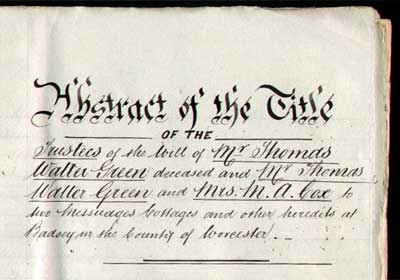 Abstract of the Title
OF THE
Trustees of the Will of Mr Thomas
Walter Green deceased and Mr Thomas
Walter Green and Mrs. M. A. Cox to
two Messuages Cottages and other heredits at
Badsey in the County of Worcester.